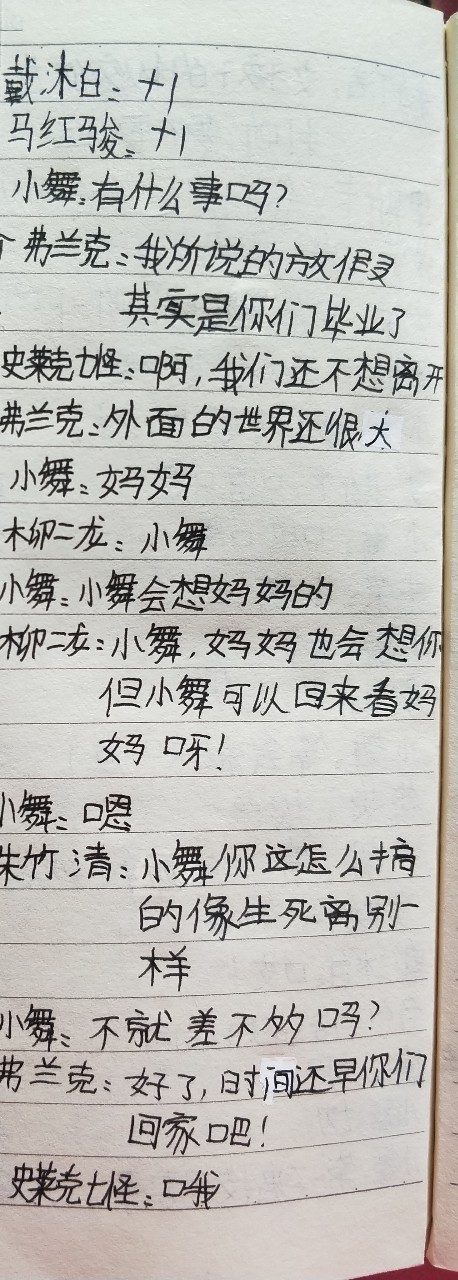 戴沐白：+1
马红骏：+1
小舞：有什么事吗？
弗兰克：我所说的放假
其实是你们毕业了
史莱克七怪：啊，我们还不想离开
弗兰克：外面的世界还很大
小舞：妈妈
柳二龙：小舞
小舞：小舞会想妈妈的
柳二龙：小舞，妈妈也会想你
但小舞可以回来看妈
妈呀！
小舞：嗯
朱竹清：小舞你这怎么搞
的像生死离别一
样
小舞：不就差不多吗？
弗兰克：好了，时间还早你们
回家吧！
史莱克七怪：哦